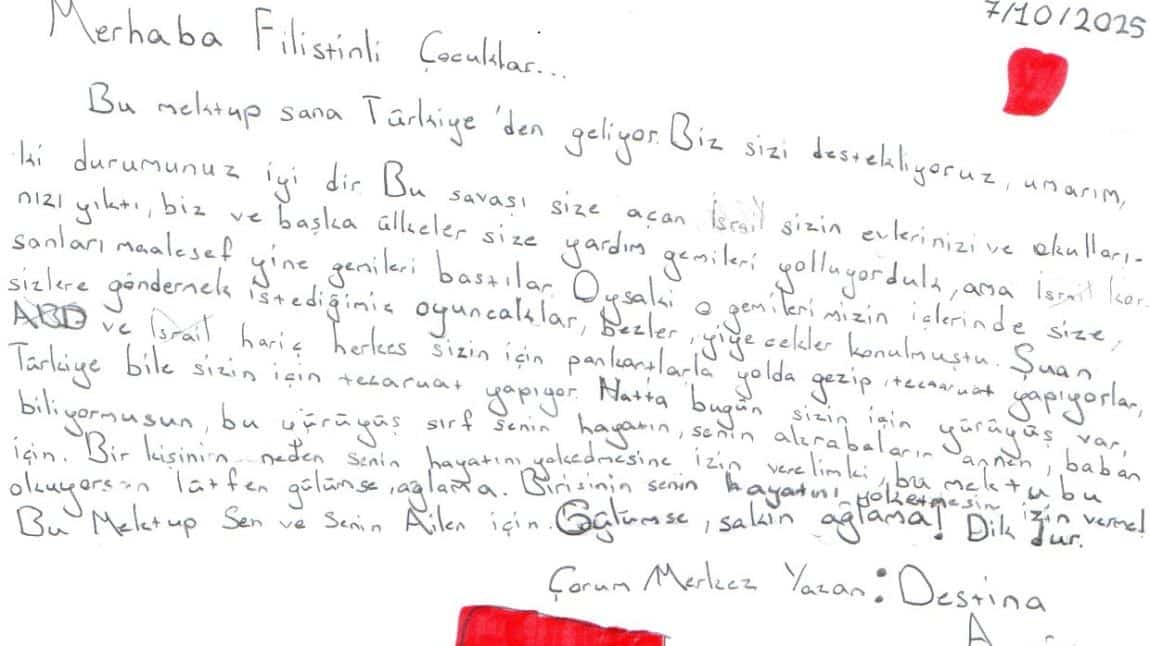 7/10/2025
Merhaba Filistinli Çocuklar...
Bu mektup sana Türkiye'den geliyor. Biz sizi destekliyoruz, umarım,
ki durumunuz iyi dir. Bu savaşı size açan İsrail sizin evlerinizi ve okulları-
nızı yıktı, biz ve başka ülkeler size yardım gemileri yolluyorduk, ama İsrail kor-
sanları maalesef yine gemileri bastılar. Oysaki o gemilerimizin içlerinde size,
sizlere göndermek istediğimiz oyuncaklar, bezler, yiyecekler konulmuştu. Şuan
ABD ve İsrail hariç herkes sizin için pankartlarla yolda gezip, tezaruat yapıyorlar,
Türkiye bile sizin için tezaruat yapıyor. Hatta bugün sizin için yürüyüş var,
biliyormusun, bu yürüyüş sırf senin hayatın, senin akrabaların annen, baban
için. Bir kişinin neden senin hayatını yokedmesine izin verelimki, bu mektubu
okuyorsan lütfen gülümse, ağlama. Birisinin senin hayatını yoketmesin izin verme!
Bu Mektup Sen ve Senin Ailen için. Gülümse, sakın ağlama! Dik dur.
Çorum Merkez Yazan: Destina
A